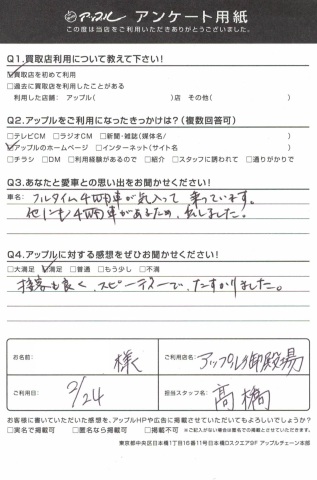 アップル アンケート用紙
この度は当店をご利用いただきありがとうございました。
Q1.買取店利用について教えて下さい!
☑買取店を初めて利用
□過去に買取店を利用したことがある
利用した店舗： アップル( )店 その他( )
Q2.アップルをご利用になったきっかけは?(複数回答可)
□テレビCM □ラジオCM □新聞・雑誌(媒体名/ )
☑アップルのホームページ □インターネット(サイト名 )
□チラシ □DM □利用経験があるので □紹介 □スタッフに誘われて □通りがかりで
Q3.あなたと愛車との思い出をお聞かせください!
車名: フルタイム4WD車が気入って乗っています。
他にも4WD車があるため、出しました。
Q4.アップルに対する感想をぜひお聞かせください!
□大満足 ☑満足 □普通 □もう少し □不満
接客も良く、スピーディーで、たすかりました。
お名前: 様
ご利用店名: アップル御殿場
ご利用日: 2/24
担当スタッフ名: 高橋
お客様に書いていただいた感想を、アップルHPや広告に掲載させていただいてもよろしいでしょうか?
□実名で掲載可 □匿名なら掲載可 □掲載不可 ※ご記入がない場合は匿名での掲載とさせていただきます。
東京都中央区日本橋1丁目16番11号日本橋Dスクエア8F アップルチェーン本部